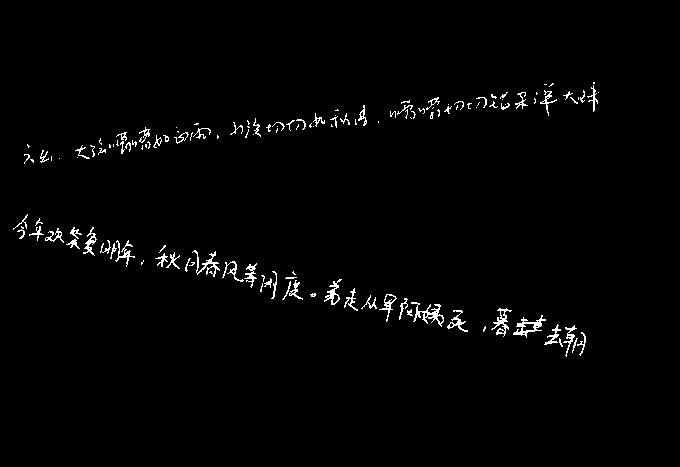 六幺.大弦嘈嘈如急雨,小弦切切如私语,嘈嘈切切错杂弹大珠
今年欢笑复明年,秋月春风等闲度。弟走从军阿姨死,暮去朝